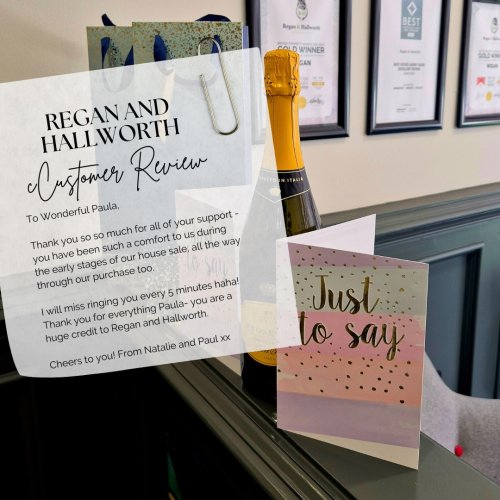 Regan & Hallworth
GOLD WINNER
REGAN
BEST
GOLD
REGAN AND
HALLWORTH
cCustomer Review
To Wonderful Paula,
Thank you so so much for all of your support -
you have been such a comfort to us during
the early stages of our house sale, all the way
through our purchase too.
I will miss ringing you every 5 minutes haha!
Thank you for everything Paula- you are a
huge credit to Regan and Hallworth.
Cheers to you! From Natalie and Paul xx
to say
Just
to say